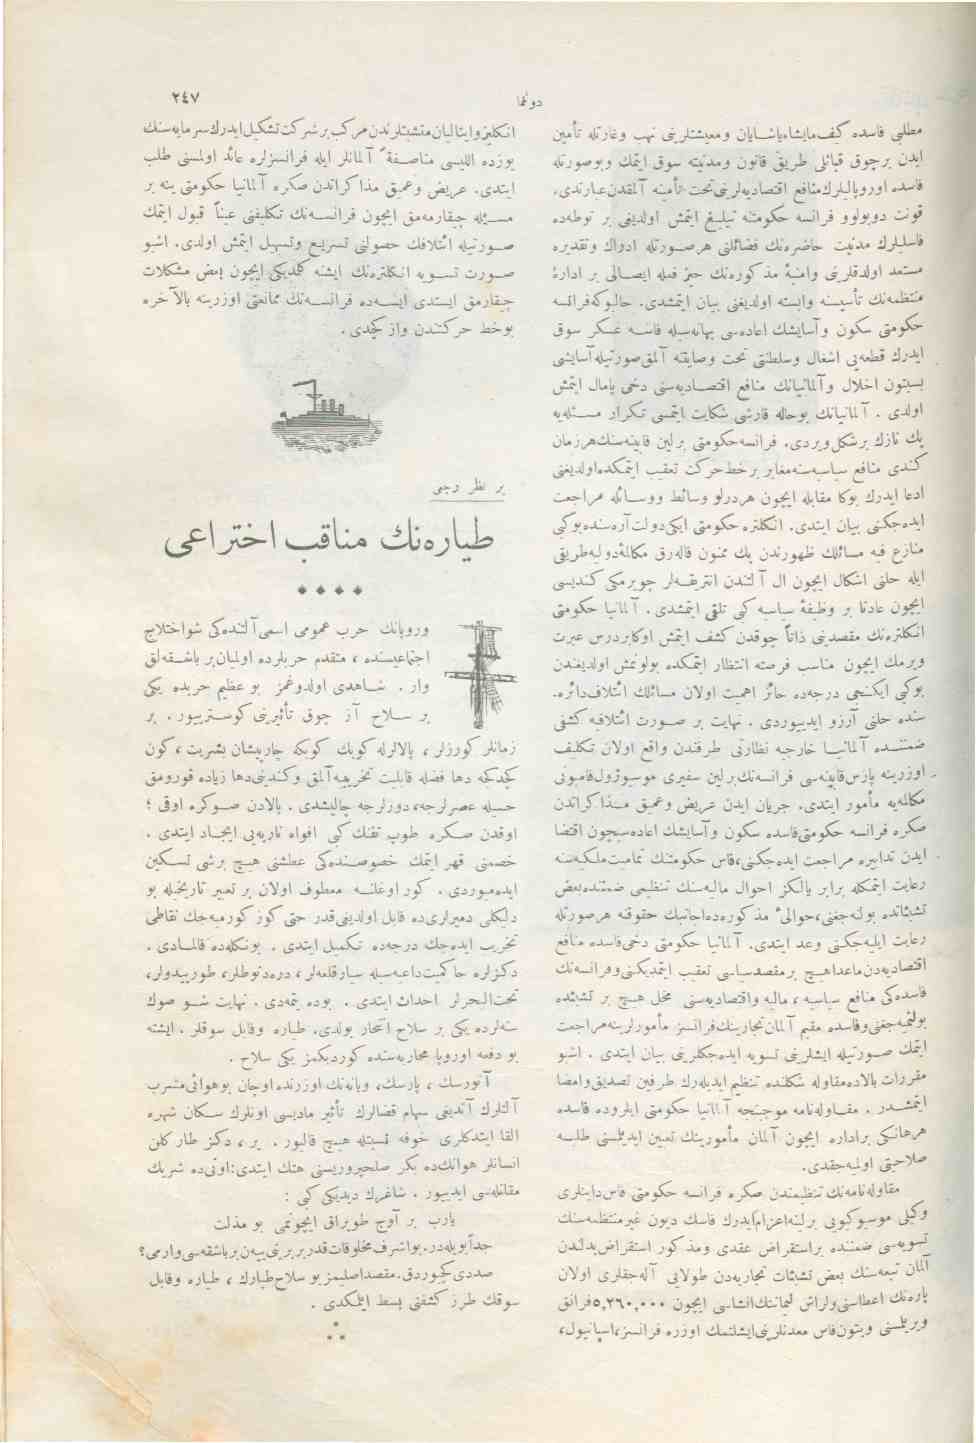 دونما
٢٤٧
مطلبی فاسده كیف‌مایشاء یاشایان ومعیشتلرینی نهب وغارتله تأمین
ایدن برچوق قبائلی طریق قانون ومدنیته سوق ایتمك وبوصورتله
فاسده اوروپالیلرك منافع اقتصادیه‌لرینی تحت تأمینه آلمقدن عبارتدی.
قونت دوبولوو فرانسه حكومتنه تبلیغ ایتمش اولدیغی بر نوطه‌ده
فاسلیلرك مدنیت حاضره‌نك فضائلنی هر صورتله ادراك وتقدیره
مستعد اولدقلرینی وامنیهٔ مذكوره‌نك حیز فعله ایصالی بر ادارهٔ
منتظمه‌نك تأسیسنه وابسته اولدیغنی بیان ایتمشدی. حالبوكه فرانسه
حكومتی سكون وآسایشك اعاده‌سی بهانه‌سیله فاسه عسكر سوق
ایدرك قطعه‌یی اشغال وسلطنتی تحت وصایتنه آلمق صورتیله آسایشی
بسبتون اخلال وآلمانیانك منافع اقتصادیه‌سنی دخی پامال ایتمش
اولدی . آلمانیانك بوحاله قارشی شكایت ایتمسی تكرار مسئله‌یه
پك نازك برشكل ویردی. فرانسه حكومتی برلین قابینه‌سنك هر زمان
كندی منافع سیاسیه‌سنه مغایر بر خط حركت تعقیب ایتمكده اولدیغنی
ادعا ایدرك بوكا مقابله ایچون هر درلو وسائط ووسائله مراجعت
ایده‌جكنی بیان ایتدی. انكلتره حكومتی ایكی دولت آره‌سنده بوكبی
منازع فیه مسائلك ظهورندن پك ممنون قاله‌رق مكالمهٔ دولیه طریقی
ایله حلنی اشكال ایچون ال آلتندن انتریقه‌لر چویرمكی كندیسی
ایچون عادتا بر وظیفهٔ سیاسیه كبی تلقی ایتمشدی . آلمانیا حكومتی
انكلتره‌نك مقصدینی ذاتاً چوقدن كشف ایتمش اوكا بر درس عبرت
ویرمك ایچون مناسب فرصته انتظار ایتمكده بولونمش اولدیغندن
بوكبی ایكنجی درجه‌ده حائز اهمیت اولان مسائلك ائتلاف دائره‌
سنده حلنی آرزو ایدییوردی. نهایت بر صورت ائتلافیه كشفی
ضمننده آلمانیا خارجیه نظارتی طرفندن واقع اولان تكلیف
اوزرینه پارس قابینه‌سی فرانسه‌نك برلین سفیری موسیو ژول قامبونی
مكالمه‌یه مأمور ایتدی. جریان ایدن عریض وعمیق مذاكراتدن
صكره فرانسه حكومتی فاسده سكون وآسایشك اعاده‌سیچون اقتضا
ایدن تدابیره مراجعت ایده‌جكنی، فاس حكومتنك تمامیت ملكیه‌سنه
رعایت ایتمكله برابر یالكز احوال مالیه‌سنك تنظیمی ضمننده بعض
تشبثاتده بولنه‌جغنی، حوالیٔ مذكوره‌ده اجانبك حقوقنه هر صورتله
رعایت ایلیه‌جكنی وعد ایتدی. آلمانیا حكومتی دخی فاسده منافع
اقتصادیه‌دن ماعدا هیچ بر مقصد سیاسی تعقیب ایتمدیكنی وفرانسه‌نك
فاسده‌كی منافع سیاسیه ، مالیه واقتصادیه‌سنی مخل هیچ بر تشبثده
بولنمیه‌جغنی وفاسده مقیم آلمان تجارینك فرانسز مأمورلرینه مراجعت
ایتمك صورتیله ایشلرینی تسویه ایده‌جكلرینی بیان ایتدی . اشبو
مقررات بالاده مقاوله شكلنده تنظیم ایدیله‌رك طرفین تصدیق وامضا
ایتمشدر . مقاوله‌نامه موجبنجه آلمانیا حكومتی ایلروده فاسده
هرهانكی براداره ایچون آلمان مأمورینك تعیین ایدیلمسنی طلبه
صلاحیتی اولمیه‌جقدی.
مقاوله‌نامه‌نك تنظیمندن صكره فرانسه حكومتی فاس داینلری
وكیلی موسیو كیوبی برلینه اعزام ایدرك فاسك دیون غیر منتظمه‌سنك
تسویه‌سی ضمننده بر استقراض عقدی ومذكور استقراض بدلندن
آلمان تبعه‌سنك بعض تشبثات تجاریه‌دن طولایی آله‌جقلری اولان
پاره‌نك اعطاسنی ولراش لیماننك انشاسی ایچون ٥,٢٦٠,٠٠٠ فرانق
ویریلمسنی وبتون فاس معدنلرینی ایشلتمك اوزره فرانسز، اسپانیول،
انكلیز وایتالیان متشبثلرندن مركب بر شركت تشكیل ایدرك سرمایه‌سنك
یوزده اللیسی مناصفةً آلمانلر ایله فرانسزلره عائد اولمسنی طلب
ایتدی. عریض وعمیق مذاكراتدن صكره آلمانیا حكومتی ینه بر
مسئله چیقارمه‌مق ایچون فرانسه‌نك تكلیفنی عیناً قبول ایتمك
صورتیله ائتلافك حصولنی تسریع وتسهیل ایتمش اولدی. اشبو
صورت تسویه انكلتره‌نك ایشنه كلمدیكی ایچون بعض مشكلات
چیقارمق ایستدی ایسه‌ده فرانسه‌نك ممانعتی اوزرینه بالآخره
بو خط حركتدن واز كچدی .
بر نظر رجعی
طیاره‌نك مناقب اختراعی
وروپانك حرب عمومی اسمی آلتنده‌كی شو اختلاج
اجتماعیسنده ، متقدم حربلرده اولمیان بر باشقه‌لق
وار . شاهدی اولدوغمز بو عظیم حربده یكی
بر سلاح آز چوق تأثیرینی كوستریور . بر
زمانلر كورزلر ، پالالرله كوپك كوپكه چارپیشان بشریت ، كون
كچدكجه دها فضله قابلیت تخریبیه آلمق وكندینی دها زیاده قورومق
حسیله عصرلرجه، دورلرجه چالیشدی . پالادن صوكره اوقی ؛
اوقدن صكره طوپ تفنك كبی افواه ناریه‌یی ایجاد ایتدی .
خصمنی قهر ایتمك خصوصنده‌كی عطشنی هیچ برشی تسكین
ایده‌میوردی . كور اوغلنه معطوف اولان بر تعبیر تاریخیله بو
دلیكلی دمیرلری‌ده قابل اولدیغی قدر حتی كوز كورمیه‌جك نقاطی
تخریب ایده‌جك درجه‌ده تكمیل ایتدی . بونكله‌ده قالمادی .
دكزلره حاكمیت داعیه‌سیله سیار قلعه‌لر ، دره‌دنوطلر، طورپیدولر،
تحت‌البحرلر احداث ایتدی . بوده یتمه‌دی . نهایت شو صوك
سنه‌لرده یكی بر سلاح انتحار بولدی. طیاره وقابل سوقلر . ایشته
بو دفعه اوروپا محاربه‌سنده كوردیكمز یكی سلاح .
آنورسك ، پارسك، ویانه‌نك اوزرنده اوچان بو هوائی مشرب
آلتلرك آتدیغی سهام قضالرك تأثیر مادیسی اونلرك سكان شهره
القا ایتدكلری خوفه نسبتله هیچ قالیور . یر ، دكز طار كلن
انسانلر هوانك‌ده بكر صلحپروریسنی هتك ایتدی: اونی‌ده شریك
مقاتله‌سی ایدییور . شاعرك دیدیكی كبی :
یارب بر آوج طوپراق ایچونمی بو مذلت
جداً بویله‌در. بو اشرف مخلوقات قدر بربرینی یین بر باشقه‌سی وارمی؟
صددی كچیوردق. مقصد اصلیمز بو سلاح طیارك ، طیاره وقابل
سوقك طرز كشفنی بسط ایتمكدی .